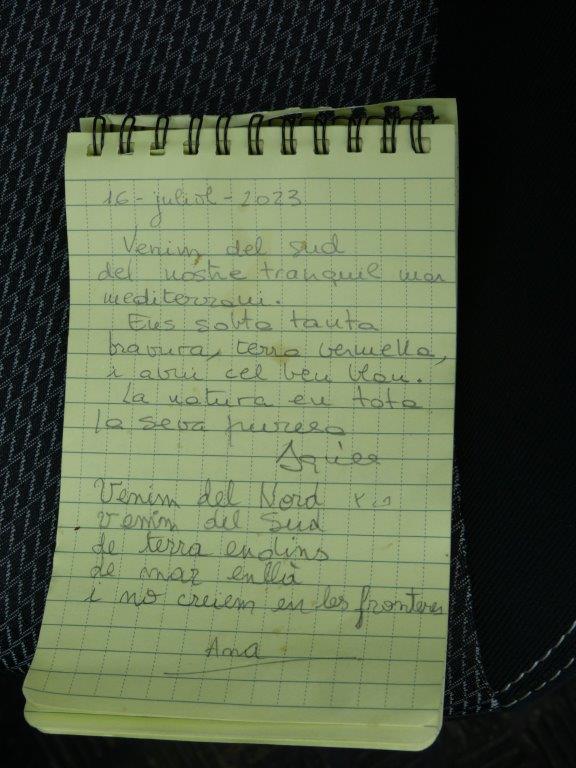 16 - juliol - 2023
Venim del sud
del nostre tranquil mar
mediterrani.
Ens sobta tanta
bravura, terra vermella,
i avui cel ben blau.
La natura en tota
la seva puresa
Venim del Nord
venim del Sud
de terra endins
de mar enllà
i no creiem en les fronteres
Ana